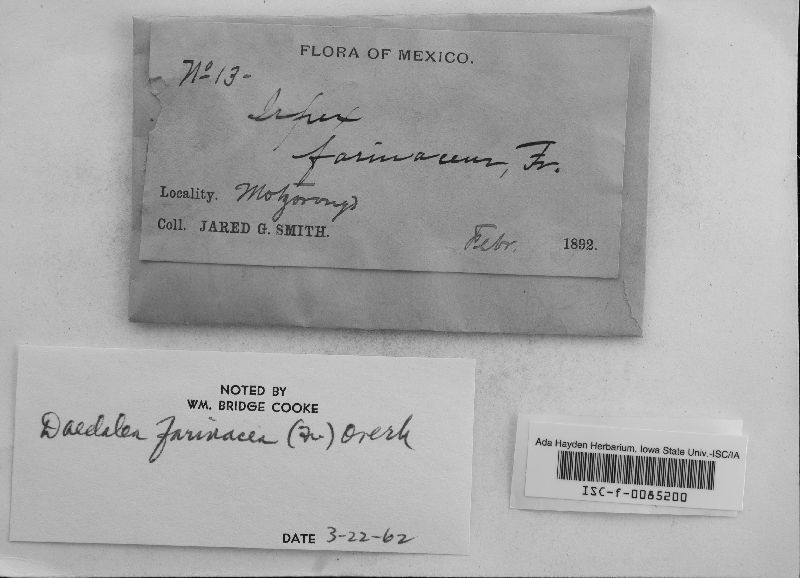 FLORA OF MEXICO.
No 13-
Irpex
farinaceus, Fr.
Locality. Motzorongo
Coll. JARED G. SMITH.
Febr. 1892.
NOTED BY
WM. BRIDGE COOKE
Daedalea farinacea (Fr) Overh
DATE 3-22-62
Ada Hayden Herbarium, Iowa State Univ.-ISC/IA
ISC-f-0085200